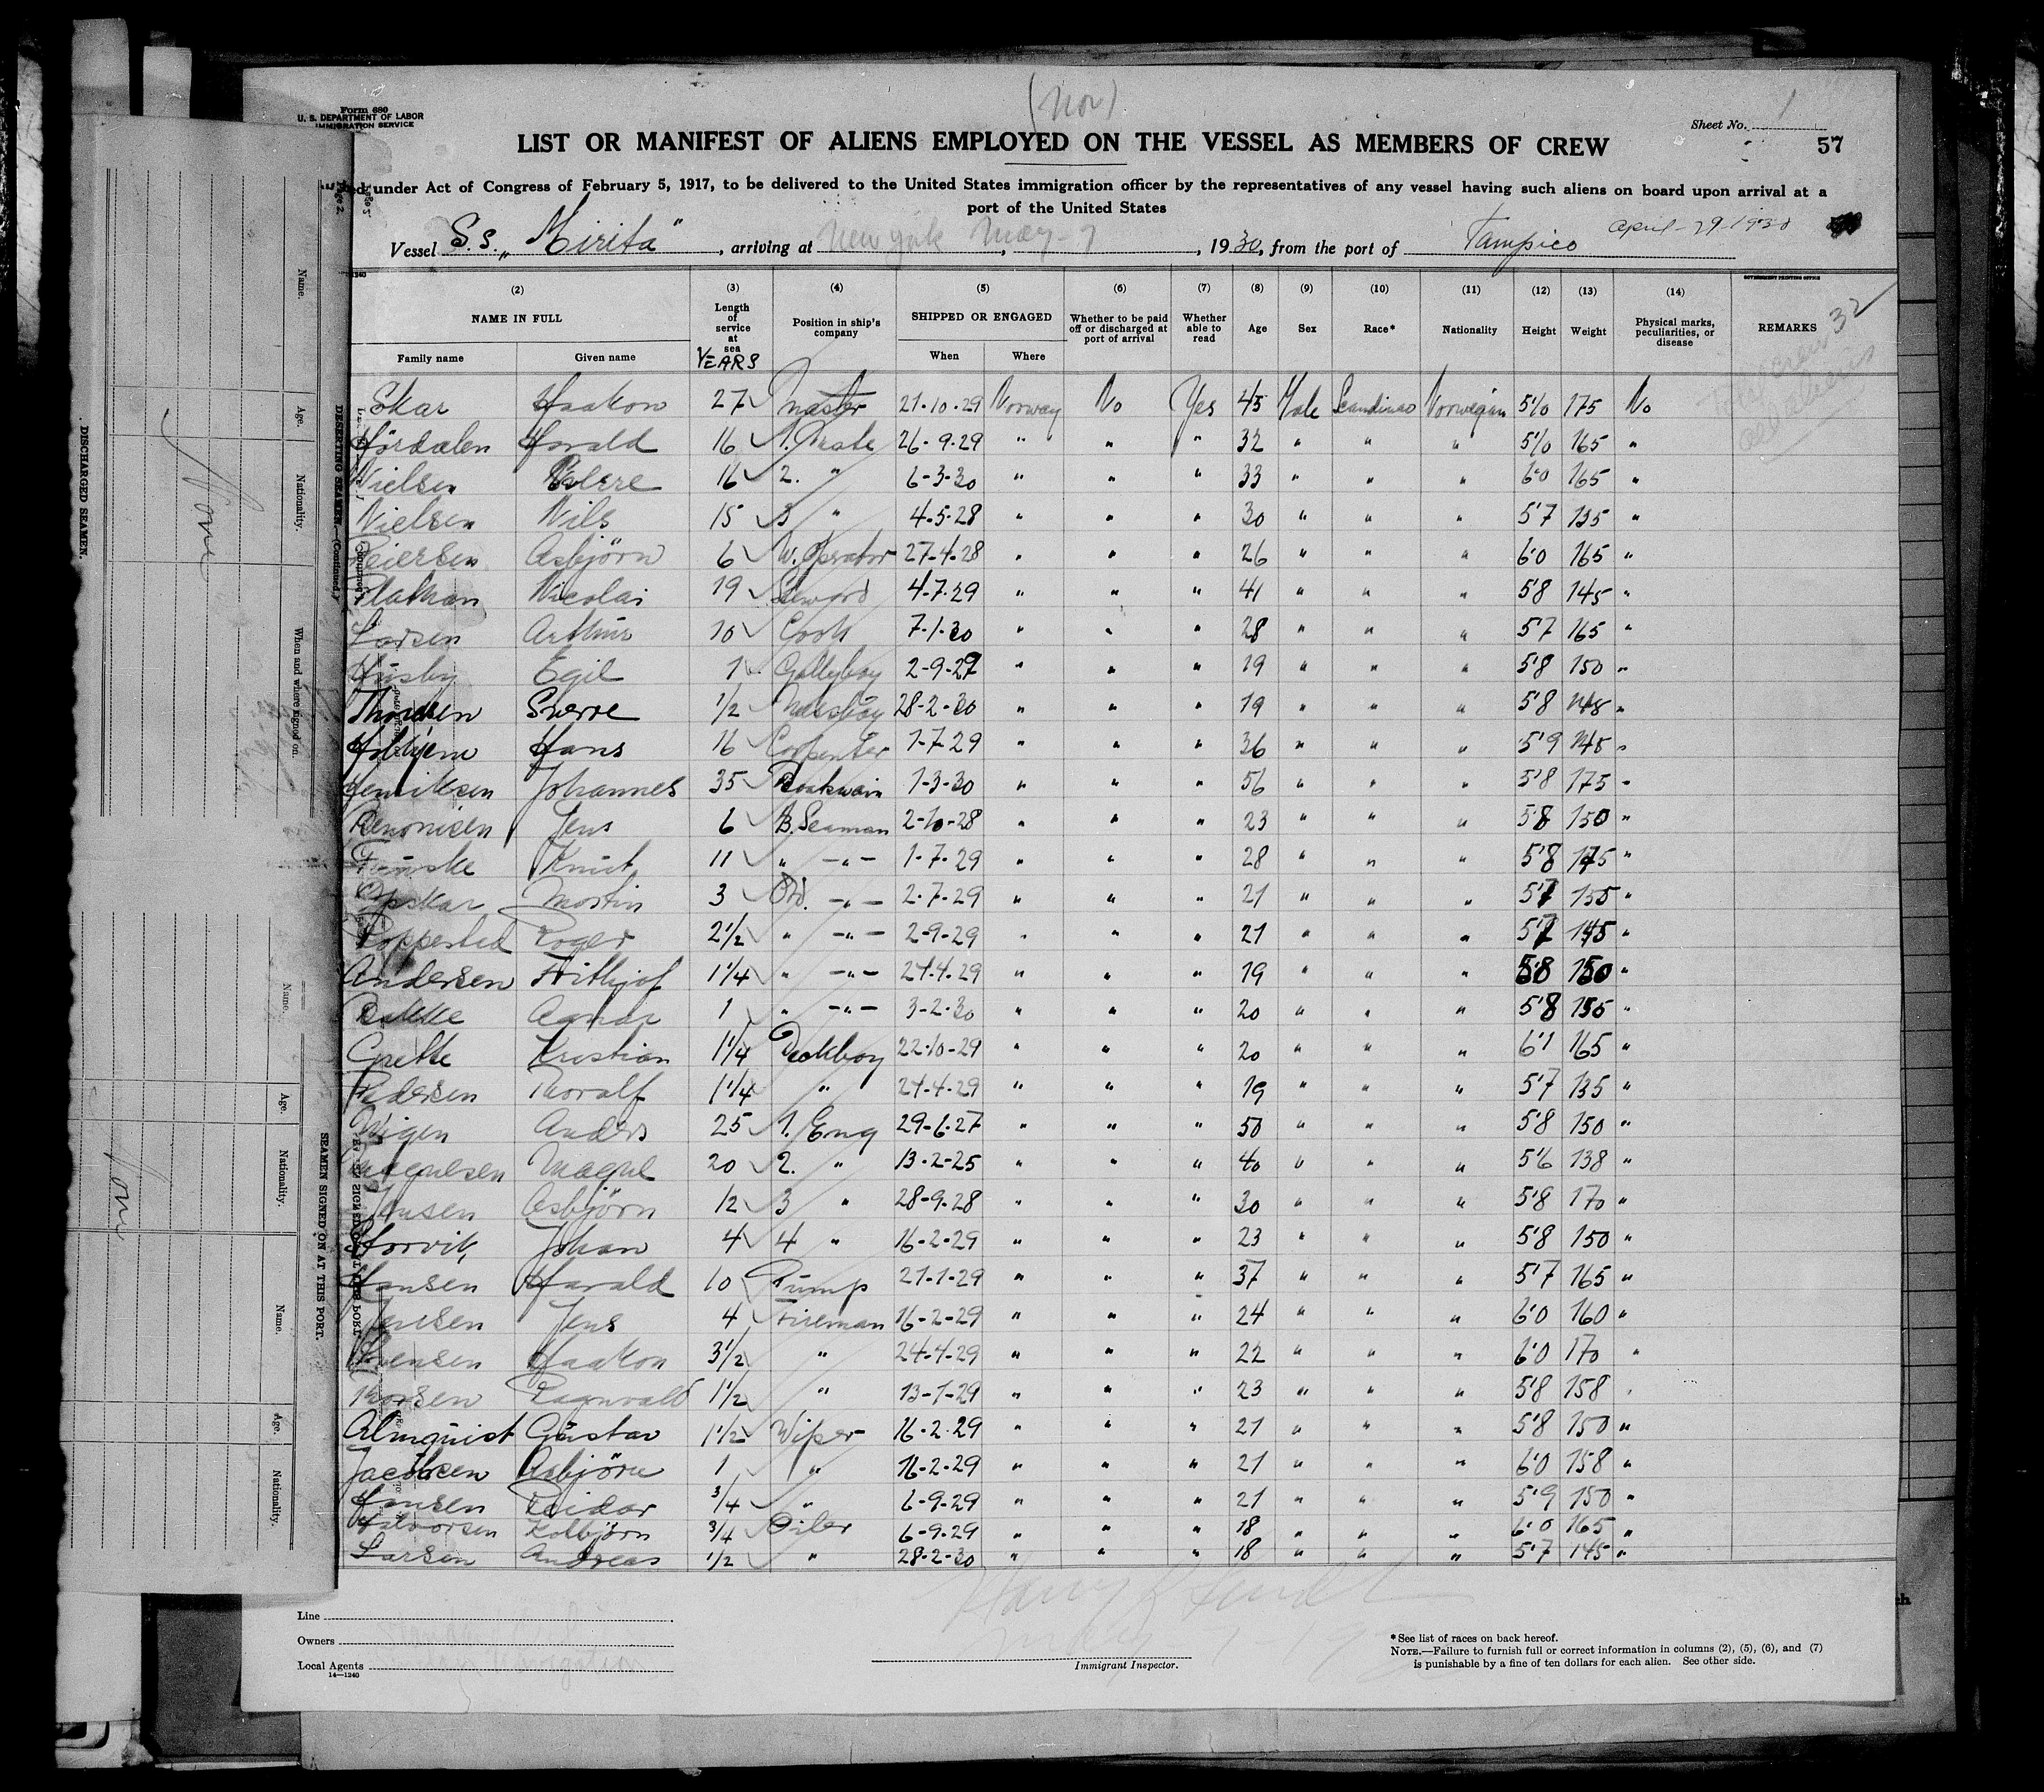 (Nor)
Form 680
U. S. DEPARTMENT OF LABOR
IMMIGRATION SERVICE
Sheet No. 1
LIST OR MANIFEST OF ALIENS EMPLOYED ON THE VESSEL AS MEMBERS OF CREW
57
under Act of Congress of February 5, 1917, to be delivered to the United States immigration officer by the representatives of any vessel having such aliens on board upon arrival at a
port of the United States
Vessel S.S. „Mirita", arriving at New York May-7, 1930, from the port of Tampico April-29-1930
(2) (3) (4) (5) (6) (7) (8) (9) (10) (11) (12) (13) (14)
GOVERNMENT PRINTING OFFICE
NAME IN FULL Length of service at sea YEARS Position in ship's company SHIPPED OR ENGAGED Whether to be paid off or discharged at port of arrival Whether able to read Age Sex Race* Nationality Height Weight Physical marks, peculiarities, or disease REMARKS
Family name Given name When Where
32
Skar Haakon 27 Master 21-10-29 Norway No Yes 45 Male Scandinav Norwegian 5'10 175 No
Hjørdalen Harald 16 1. Mate 26-9-29 " " " 32 " " " 5'10 165 "
Nielsen 16 2. " 6-3-30 " " " 33 " " " 6'0 165 "
Nielsen Nils 15 3 " 4-5-28 " " " 30 " " " 5'7 135 "
Reiersen Asbjörn 6 W. Operator 27-4-28 " " " 26 " " " 6'0 165 "
Nicolai 19 Steward 4-7-29 " " " 41 " " " 5'8 145 "
Larsen Arthur 10 Cook 7-1-30 " " " 28 " " " 5'7 165 "
Husby Egil 1 Galleyboy 2-9-29 " " " 19 " " " 5'8 150 "
Sverre 1/2 Messboy 28-2-30 " " " 19 " " " 5'8 148 "
Hans 16 Carpenter 1-7-29 " " " 36 " " " 5'9 148 "
Henriksen Johannes 35 Boatswain 1-3-30 " " " 56 " " " 5'8 175 "
Jens 6 B. Seaman 2-10-28 " " " 23 " " " 5'8 150 "
Knut 11 " -"- 1-7-29 " " " 28 " " " 5'8 175 "
Opskar Martin 3 Ord. -"- 2-7-29 " " " 21 " " " 5'7 155 "
Roger 2 1/2 " -"- 2-9-29 " " " 21 " " " 5'7 145 "
Andersen Frithjof 1 1/4 " -"- 24-4-29 " " " 19 " " " 5'8 150 "
Bakke Agnar 1 " -"- 3-2-30 " " " 20 " " " 5'8 155 "
Grette Kristian 1 1/4 Deckboy 22-10-29 " " " 20 " " " 6'1 165 "
Pedersen Thoralf 1 1/4 " 24-4-29 " " " 19 " " " 5'7 135 "
Wigen Anders 25 1. Eng 29-6-27 " " " 50 " " " 5'8 150 "
Magnesen Magne 20 2. " 13-2-25 " " " 40 " " " 5'6 138 "
Jensen Asbjörn 12 3 " 28-9-28 " " " 30 " " " 5'8 170 "
Storvik Johan 4 4 " 16-2-29 " " " 23 " " " 5'8 150 "
Hansen Harald 10 Pump 21-1-29 " " " 37 " " " 5'7 165 "
Jensen Jens 4 Fireman 16-2-29 " " " 24 " " " 6'0 160 "
Svensen Haakon 3 1/2 " 24-4-29 " " " 22 " " " 6'0 170 "
Thorsen Ragnvald 1 1/2 " 13-1-29 " " " 23 " " " 5'8 158 "
Almquist Gustav 1 1/2 Wiper 16-2-29 " " " 21 " " " 5'8 150 "
Jacobsen Asbjörn 1 " 16-2-29 " " " 21 " " " 6'0 158 "
Hansen Reidar 3/4 " 6-9-29 " " " 21 " " " 5'9 150 "
Halvorsen Kolbjörn 3/4 Oiler 6-9-29 " " " 18 " " " 6'0 165 "
Larsen Andreas 1/2 " 28-2-30 " " " 18 " " " 5'7 145 "
Line
Owners
Local Agents
14—1240
Immigrant Inspector.
*See list of races on back hereof.
NOTE.—Failure to furnish full or correct information in columns (2), (5), (6), and (7)
is punishable by a fine of ten dollars for each alien. See other side.
DISCHARGED SEAMEN.
Name. Age. Nationality. When and where signed on.
None
DESERTING SEAMEN.—(Continued.)
SEAMEN SIGNED ON AT THIS PORT.
Name. Age. Nationality. Name. Age. Nationality.
None